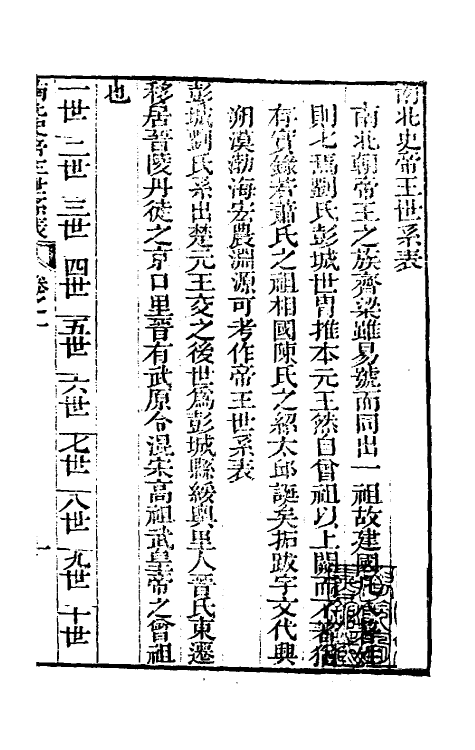 南北史帝王世系表
南北朝帝王之族齊梁雖易號而同出一祖故建國凡
則七焉劉氏彭城世冑推本元王然自曾祖以上闕而不著猶
存實錄若蕭氏之祖相國陳氏之紹太邱誕矣拓跋宇文代興
朔漠勃海宏農淵源可考作帝王世系表
彭城劉氏系出楚元王交之後世爲彭城縣綏輿里人晉氏東遷
移居晉陵丹徒之京口里晉有武原令混宋高祖武皇帝之曾祖
也
一世 二世 三世 四世 五世 六世 七世 八世 九世 十世
南北史帝王世系表 卷之一 一